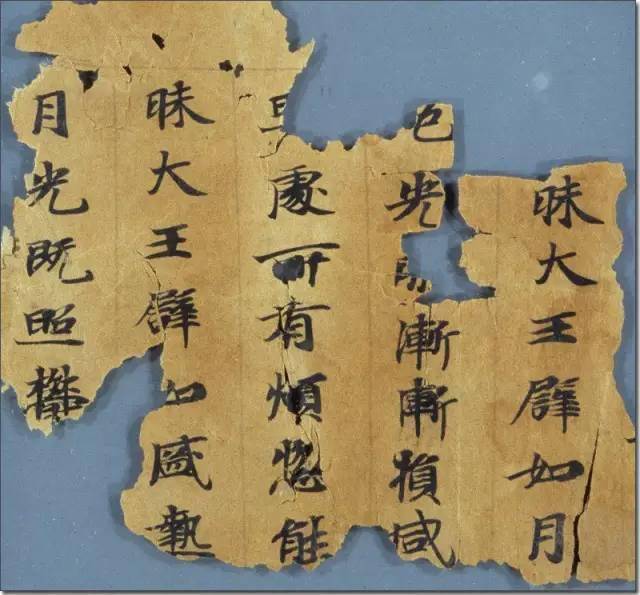 昧大王譬如月
色光明漸漸損減
處所有煩惱能
昧大王譬如盛熱
月光既照欝